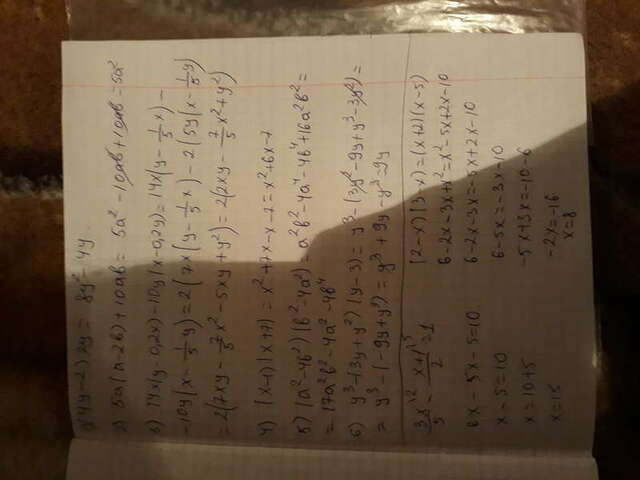 1) (4y-2) 2y = 8y² - 4y.
2) 5a(a-2b)+10ab = 5a² - 10ab + 10ab = 5a²
3) 14x(y-0,2x)-10y(x-0,2y) = 14x(y - 1/5 x) -
-10y(x - 1/5 y) = 2(7x(y - 1/5 x) - 2(5y(x - 1/5 y)
= 2(7xy - 7/5 x² - 5xy + y²) = 2(2xy - 7/5 x² + y²)
4) (x-1)(x+7) = x² + 7x - x - 7 = x² + 6x - 7
5) (a² - 4b²)(b² - 4a²) = a²b² - 4a⁴ - 4b⁴ + 16a²b² =
= 17a²b² - 4a² - 4b⁴
6) y³ - (3y + y²)(y - 3) = y³ - (3y² - 9y + y³ - 3y²) =
= y³ - (-9y + y³) = y³ + 9y - y³ = 9y
3x/5 \2 - x+1/2 \5 = 1
6x - 5x - 5 = 10
x - 5 = 10
x = 10 + 5
x = 15
(2-x)(3-x) = (x+2)(x-5)
6 - 2x - 3x + x² = x² - 5x + 2x - 10
6 - 2x - 3x = -5x + 2x - 10
6 - 5x = -3x - 10
-5x + 3x = -10 - 6
-2x = -16
x = 8